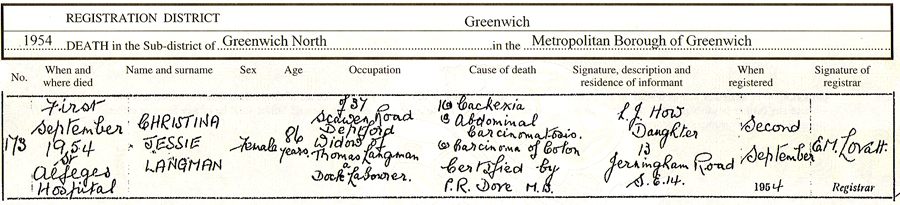 REGISTRATION DISTRICT Greenwich
1954 DEATH in the Sub-district of Greenwich North in the Metropolitan Borough of Greenwich
No. When and where died Name and surname Sex Age Occupation Cause of death Signature, description and residence of informant When registered Signature of registrar
173
First
September
1954
St
Alfeges
Hospital
CHRISTINA
JESSIE
LANGMAN
Female
86
years
of 37
Scawen Road
Deptford
Widow of
Thomas Langman
a
Dock Labourer.
1(a) Cachexia
(b) Abdominal
Carcinomatosis.
(c) Carcinoma of Colon
Certified by
P.R. Dove M.B.
L.J. How
Daughter
13
Jerningham Road
S.E.14.
Second
September
1954
E.M. Lovatt.
Registrar